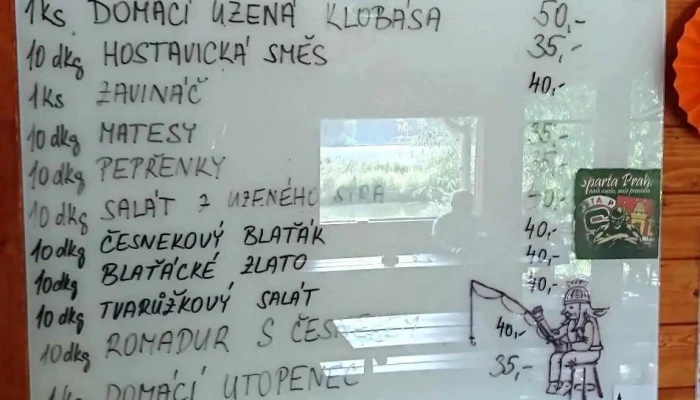 1ks DOMÁCÍ UZENÁ KLOBÁSA 50,-
10 dkg HOSTAVICKÁ SMĚS 35,-
1ks ZAVINÁČ 40,-
10 dkg MATESY 35,-
10 dkg PEPŘENKY 35,-
10 dkg SALÁT Z UZENÉHO SÝRA
10 dkg ČESNEKOVÝ BLAŤÁK 40,-
10 dkg BLAŤÁCKÉ ZLATO 40,-
10 dkg TVARŮŽKOVÝ SALÁT 40,-
10 dkg ROMADUR S ČESNEKEM 40,-
1ks DOMÁCÍ UTOPENEC 35,-
Sparta Praha